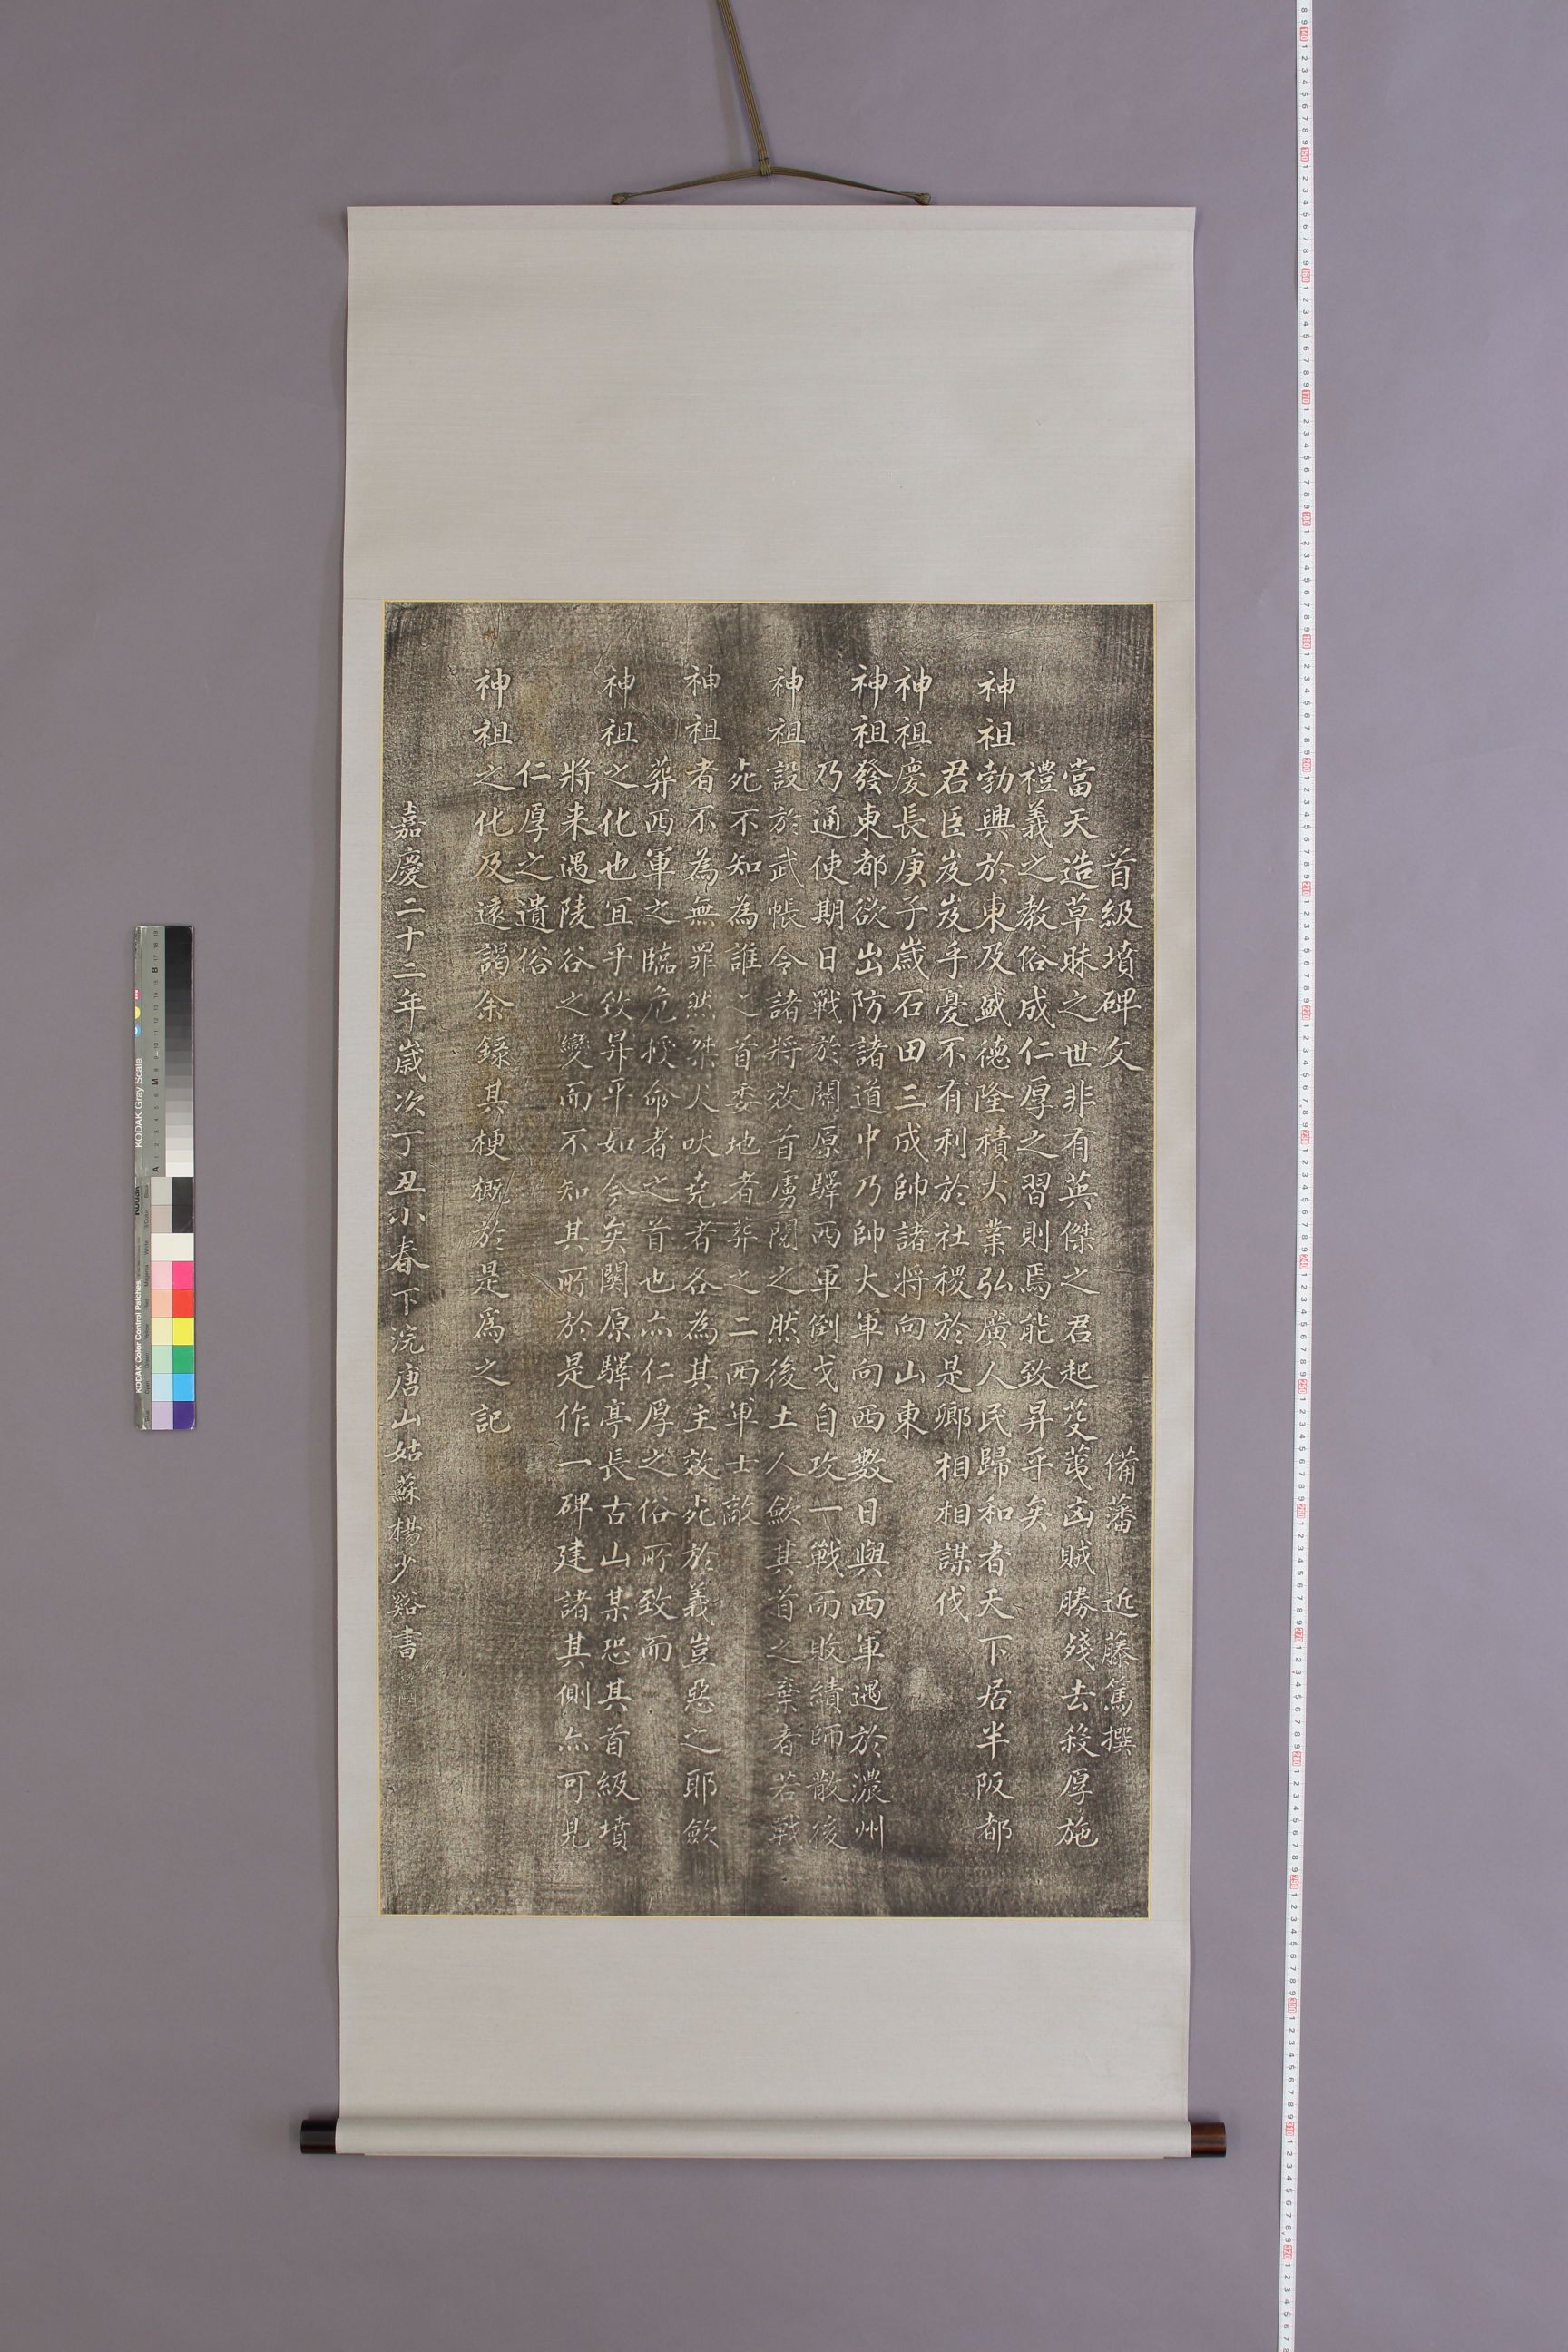 首級墳碑文 備藩 近藤篤撰
當天造草昧之世非有英傑之君起芟荑凶賊勝殘去殺厚施
禮義之教俗成仁厚之習則焉能致昇平矣
神祖勃興於東及盛德隆積大業弘廣人民歸和者天下居半阪都
君臣岌岌乎憂不有利於社稷於是鄉相相謀伐
神祖慶長庚子歲石田三成帥諸将向山東
神祖發東都欲出防諸道中乃帥大軍向西數日與西軍遇於濃州
乃通使期日戰於關原驛西軍倒戈自攻一戰而敗績師散後
神祖設於武帳令諸將效首虜閱之然後土人歛其首之棄者若戰
死不知為誰之首委地者葬之二西軍士敵
神祖者不為無罪然桀犬吠堯者各為其主效死於義豈惡之耶歛
葬西軍之臨危授命者之首也亦仁厚之俗所致而
神祖之化也宜乎致昇平如今矣關原驛亭長古山某恐其首級墳
將来遇陵谷之變而不知其所於是作一碑建諸其側亦可見
仁厚之遺俗
神祖之化及遠謁余録其梗概於是爲之記
嘉慶二十二年歲次丁丑小春下浣唐山姑蘇楊少谿書
KODAK Gray Scale
KODAK Color Control Patches